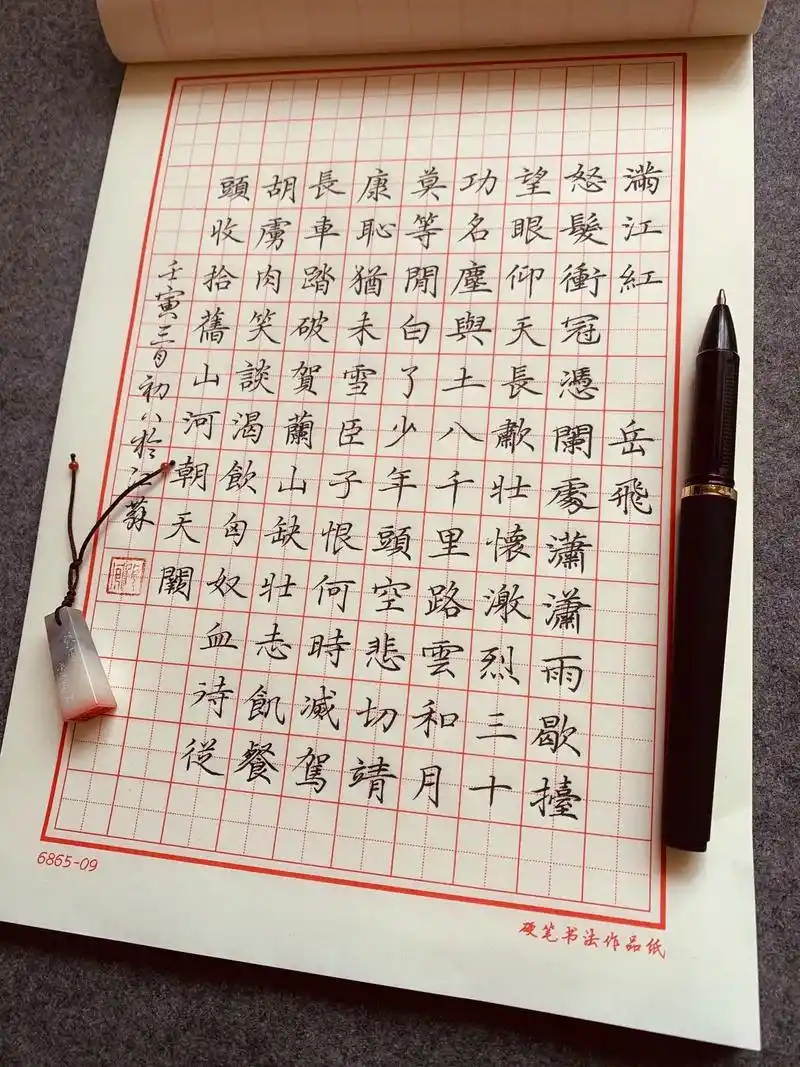 滿江紅 岳飛
怒髮衝冠憑闌處瀟瀟雨歇擡
望眼仰天長歗壯懷激烈三十
功名塵與土八千里路雲和月
莫等閒白了少年頭空悲切靖
康恥猶未雪臣子恨何時滅駕
長車踏破賀蘭山缺壯志飢餐
胡虜肉笑談渴飲匈奴血待從
頭收拾舊山河朝天闕
壬寅三月初八於江蘇
6865-09
硬笔书法作品纸